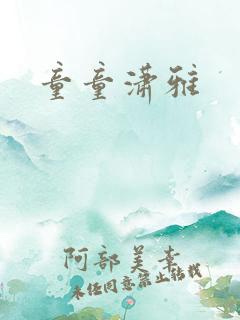 童童潇雅
阿部美幸
未经同意禁止转载